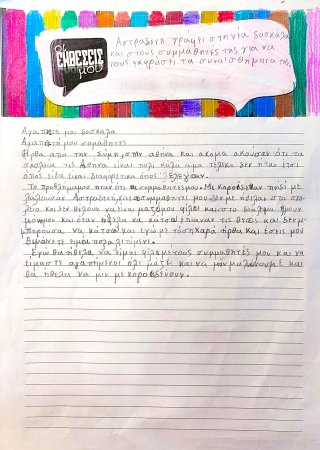 οι
ΕΚΘΕΣΕΙΣ
μου
Αστραδενή γράφει στη νέα δασκάλα
και στους συμμαθητές της για να
τους εκφράσει τα συναισθήματα της
Αγαπητή μου δασκάλα
Αγαπητή μου συμαθητές
Ήρθα απο την Σύμη στην αθηνα και ακομα ακουσαν ότι τα
σχολεια τις Αθηνα είναι πολι καλα αμα τελικα δεν ήταν έτσι
όπως είδα ειναι διαφρετικα όπως έλεγαν.
Το προβλημα μου ηταν ότι οι συμμαθητές μου. Με κορόιδευαν πηδί με
Αστραδενη και οι συμμαθητες μου δεν με ήθελαν στο σχο
λείο και δεν θελουν να είναι μαζι μου φιλοι και στο διάλημα ήμουν
μοναμου και όταν ήθελα να κατσω έπιαναν τις θεσεις και δεν μ
μπορουσα να κάτσω και εγω με τόση χαρα ήρθα και εσεις μου
ειμαι πολα λιπιμενι.
Εγω θα ήθελα να είμαι φίλη με τους συμμαθητές μου και να
ειμαστε αγαπημένοι ολι μαζι και να μην μαλώνουμε και
θα ήθελα να μιν με κοροιδευουν.